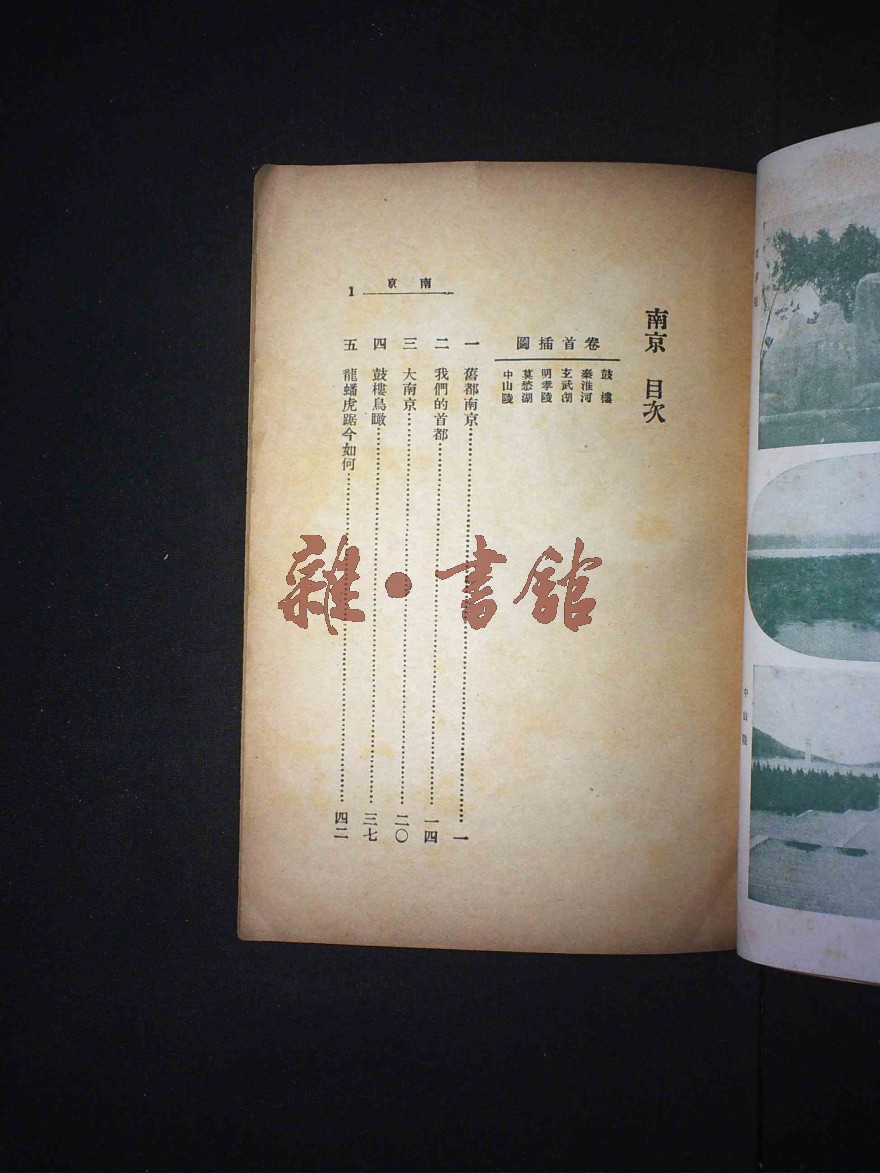 南京 目次
卷首插圖
鼓樓
秦淮河
玄武湖
明孝陵
莫愁湖
中山陵
一 舊都南京 一
二 我們的首都 一四
三 大南京 二〇
四 鼓樓鳥瞰 三七
五 龍蟠虎踞今如何 四二
南京
1
雜·書館
中山陵